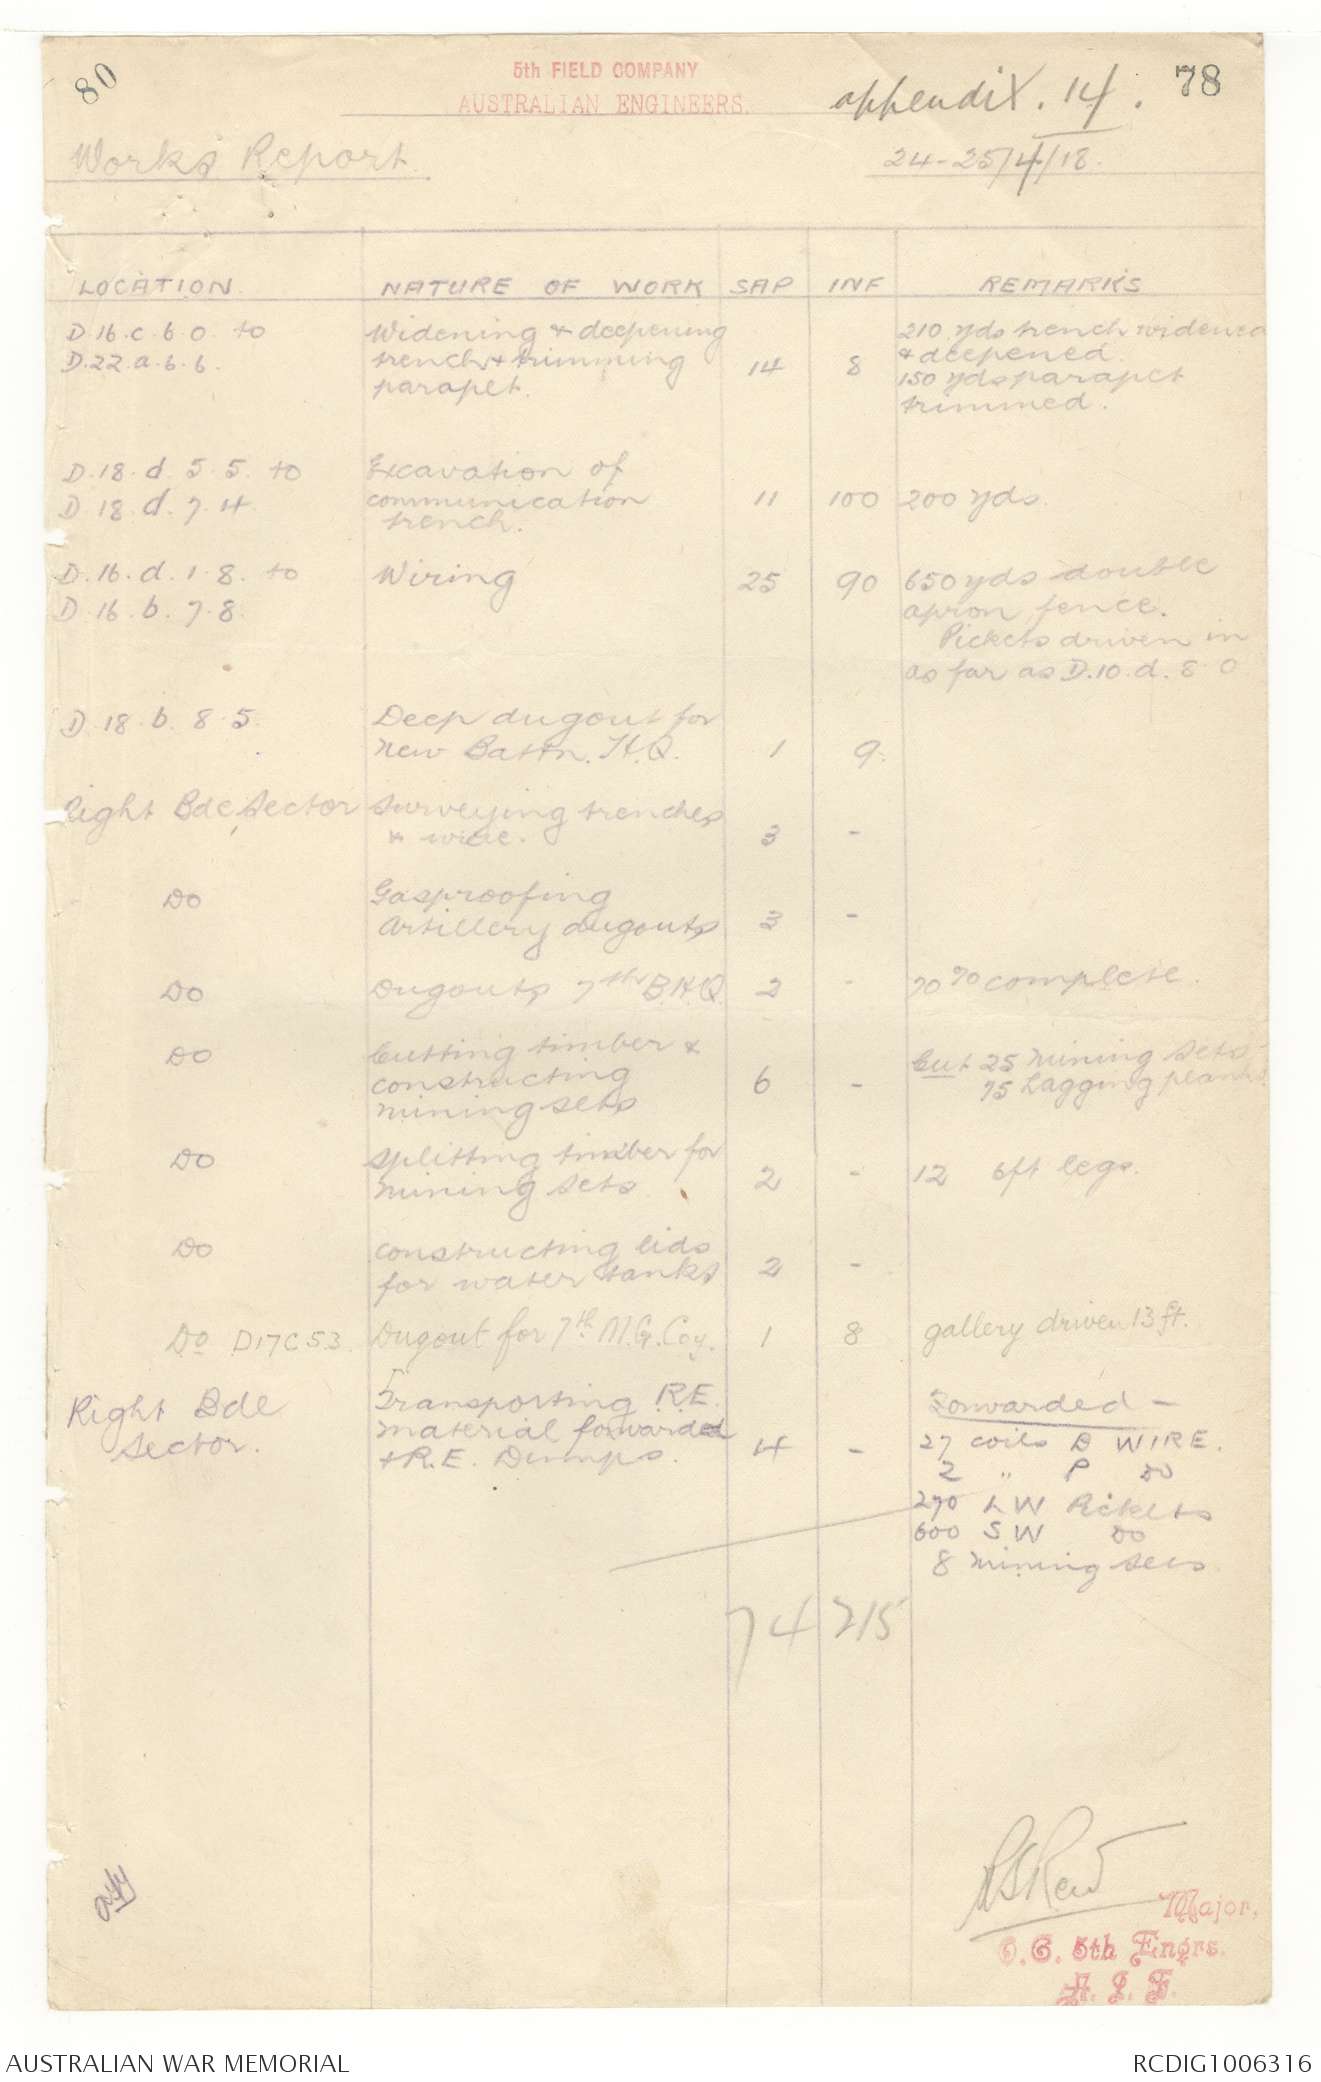 80
5th FIELD COMPANY
AUSTRALIAN ENGINEERS.
appendix. 14.
78
Works Report
24-25/4/18.
LOCATION NATURE OF WORK SAP INF REMARKS
D.16.c.6.0. to
D.22.a.6.6.
Widening & deepening
trench & trimming
parapet.
14 8
210 yds trench widened
& deepened.
150 yds parapet
trimmed.
D.18.d.5.5. to
D.18.d.7.4
Excavation of
communication
trench.
11 100 200 yds.
D.16.d.1.8. to
D.16.b.7.8.
Wiring 25 90
650 yds double
apron fence.
Pickets driven in
as far as D.10.d.8.0
D.18.b.8.5.
Deep dugout for
new Battn. H.Q. 1 9.
Right Bde Sector
Surveying trenches
& wire. 3 -
DO
Gasproofing
Artillery dugouts 3 -
DO Dugouts 7th B.H.Q 2 - 70% complete.
DO
Cutting timber &
constructing
mining sets
6 -
Cut 25 Mining Sets
75 Lagging planks
DO
Splitting timber for
mining sets 2 - 12 6ft legs.
DO
constructing lids
for water tanks 2 -
Do D17C53. Dugout for 7th M.G. Coy. 1 8 gallery driven 13 ft.
Right Bde
Sector.
Transporting R.E.
material forwarded
+ R.E. Dumps. 4 -
Forwarded -
27 coils B WIRE.
2 " P DO
270 LW Pickets
600 SW DO
8 Mining sets
74 215
Major,
O.C. 5th Engrs.
A. I. F.
AUSTRALIAN WAR MEMORIAL
RCDIG1006316